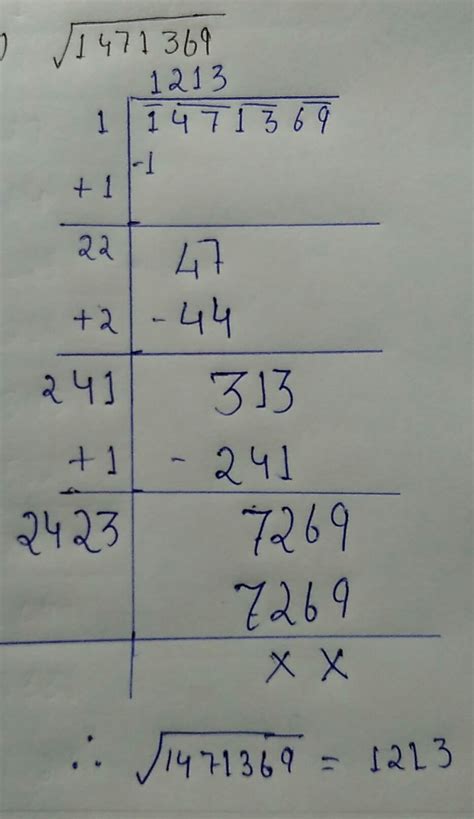 ) √1471369
1213
1 1471369
+1 -1
22 47
+2 - 44
241 313
+1 - 241
2423 7269
7269
x x
∴ √1471369 = 1213